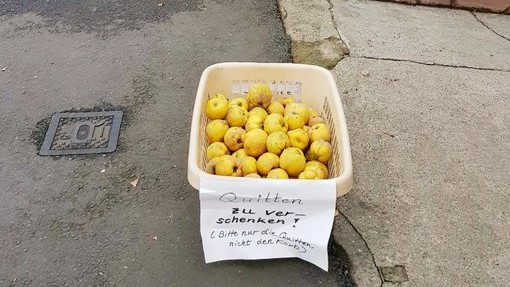 Quitten
zu ver-
schenken!
(Bitte nur die Quitten,
nicht den Korb)